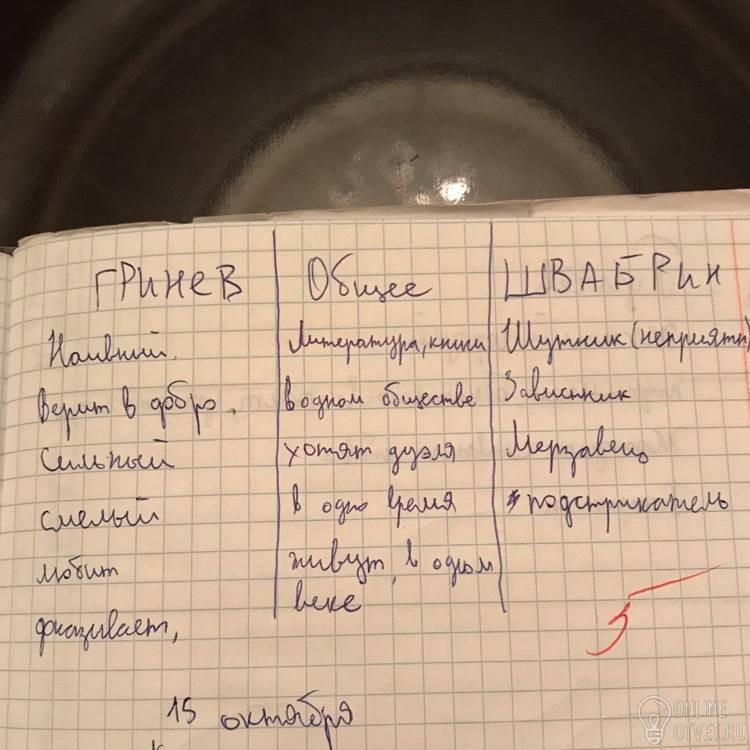 ГРИНЕВ Общее ШВАБРИН
Наивный. Литература, книги Шутник (неприятн)
Верит в добро. в одном обществе Завистник
Сильный хотят дуэля Мерзавец
смелый в одно время подстрикатель
любит живут в одном
веке
5
15 октября
ONLINE
OTVET.RU